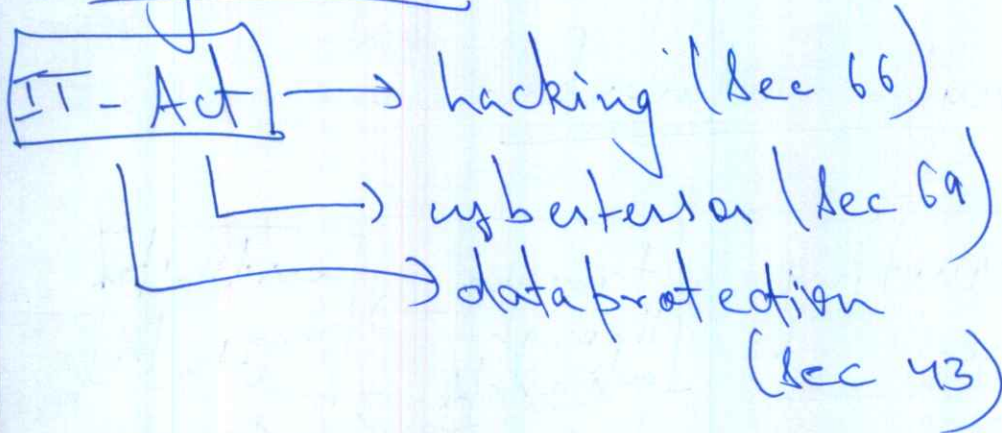 IT - Act → hacking (Sec 66)
→ cyberterror (Sec 69)
→ data protection
(Sec 43)